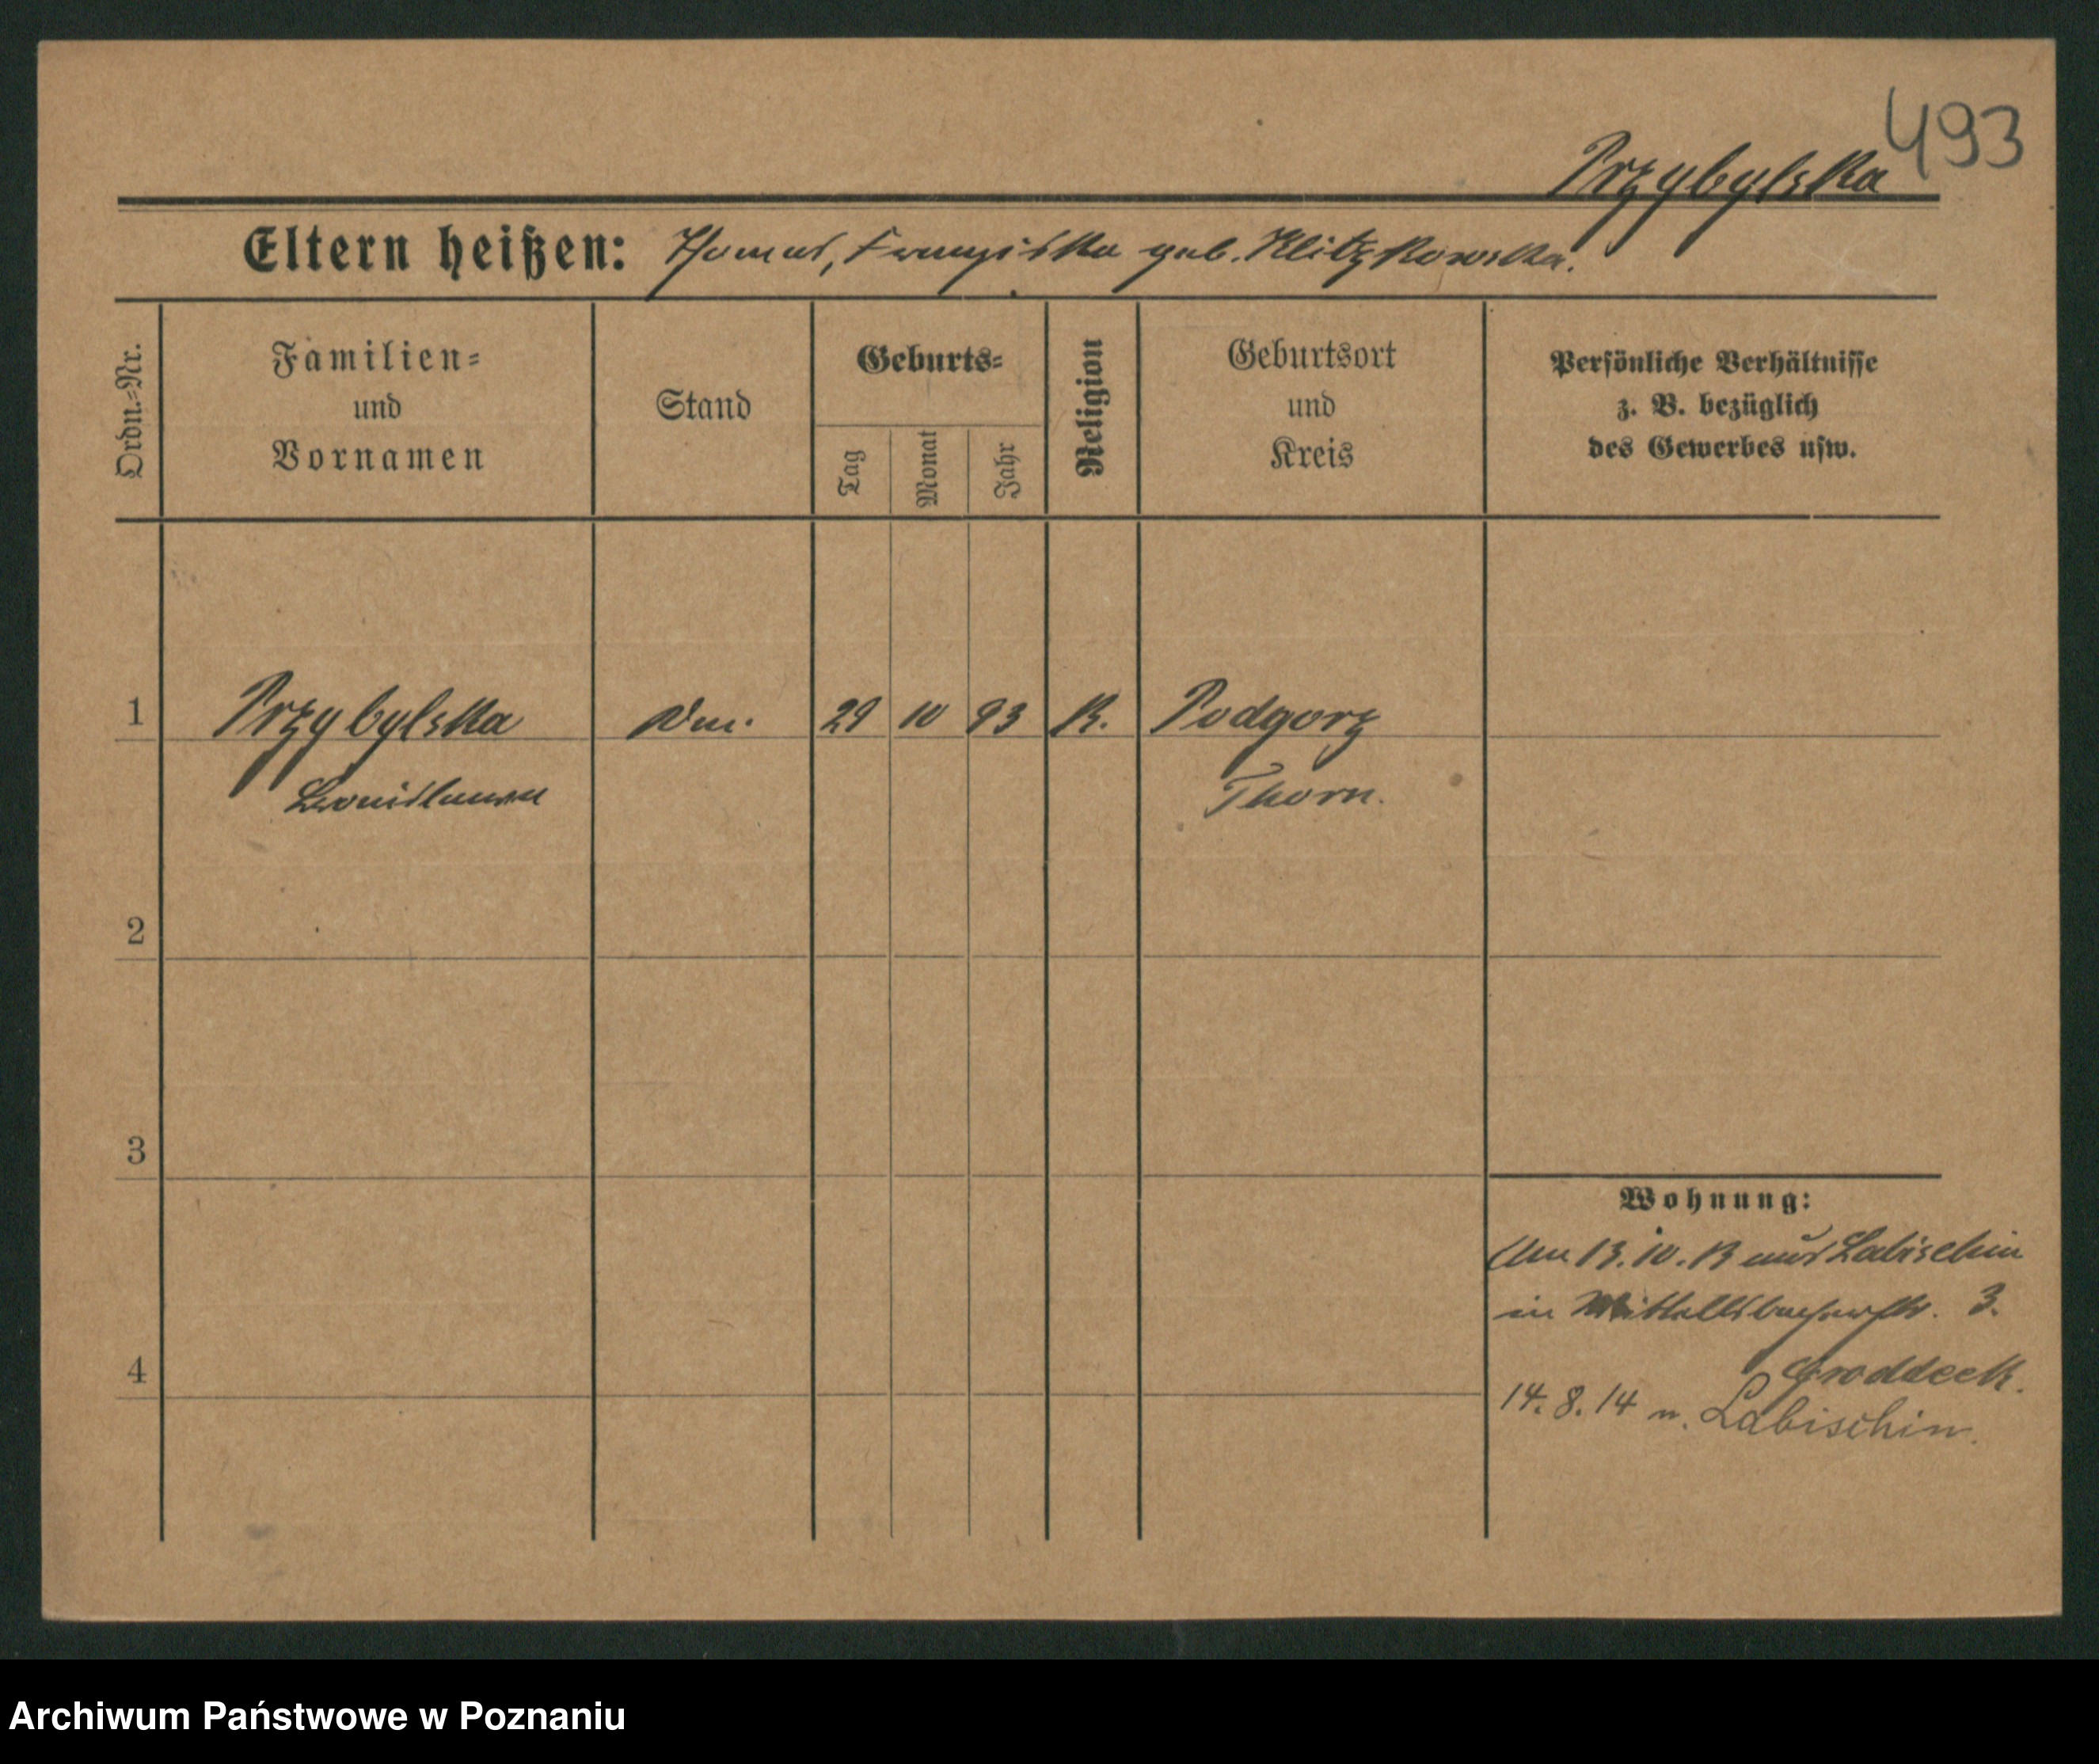 493
Przybylska
Eltern heißen: Thomas, Franziska geb. Klitzkowska.
Ordn.=Nr.
Familien=
und
Vornamen
Stand
Geburts=
Tag
Monat
Jahr
Religion
Geburtsort
und
Kreis
Persönliche Verhältnisse
z. B. bezüglich
des Gewerbes usw.
1 Przybylska 29 10 93 K. Podgorz
Thorn.
2
3
4
Wohnung:
Am 13.10.13 aus Labischin
in 3.
Groddeck.
14.8.14 n. Labischin.
Archiwum Państwowe w Poznaniu